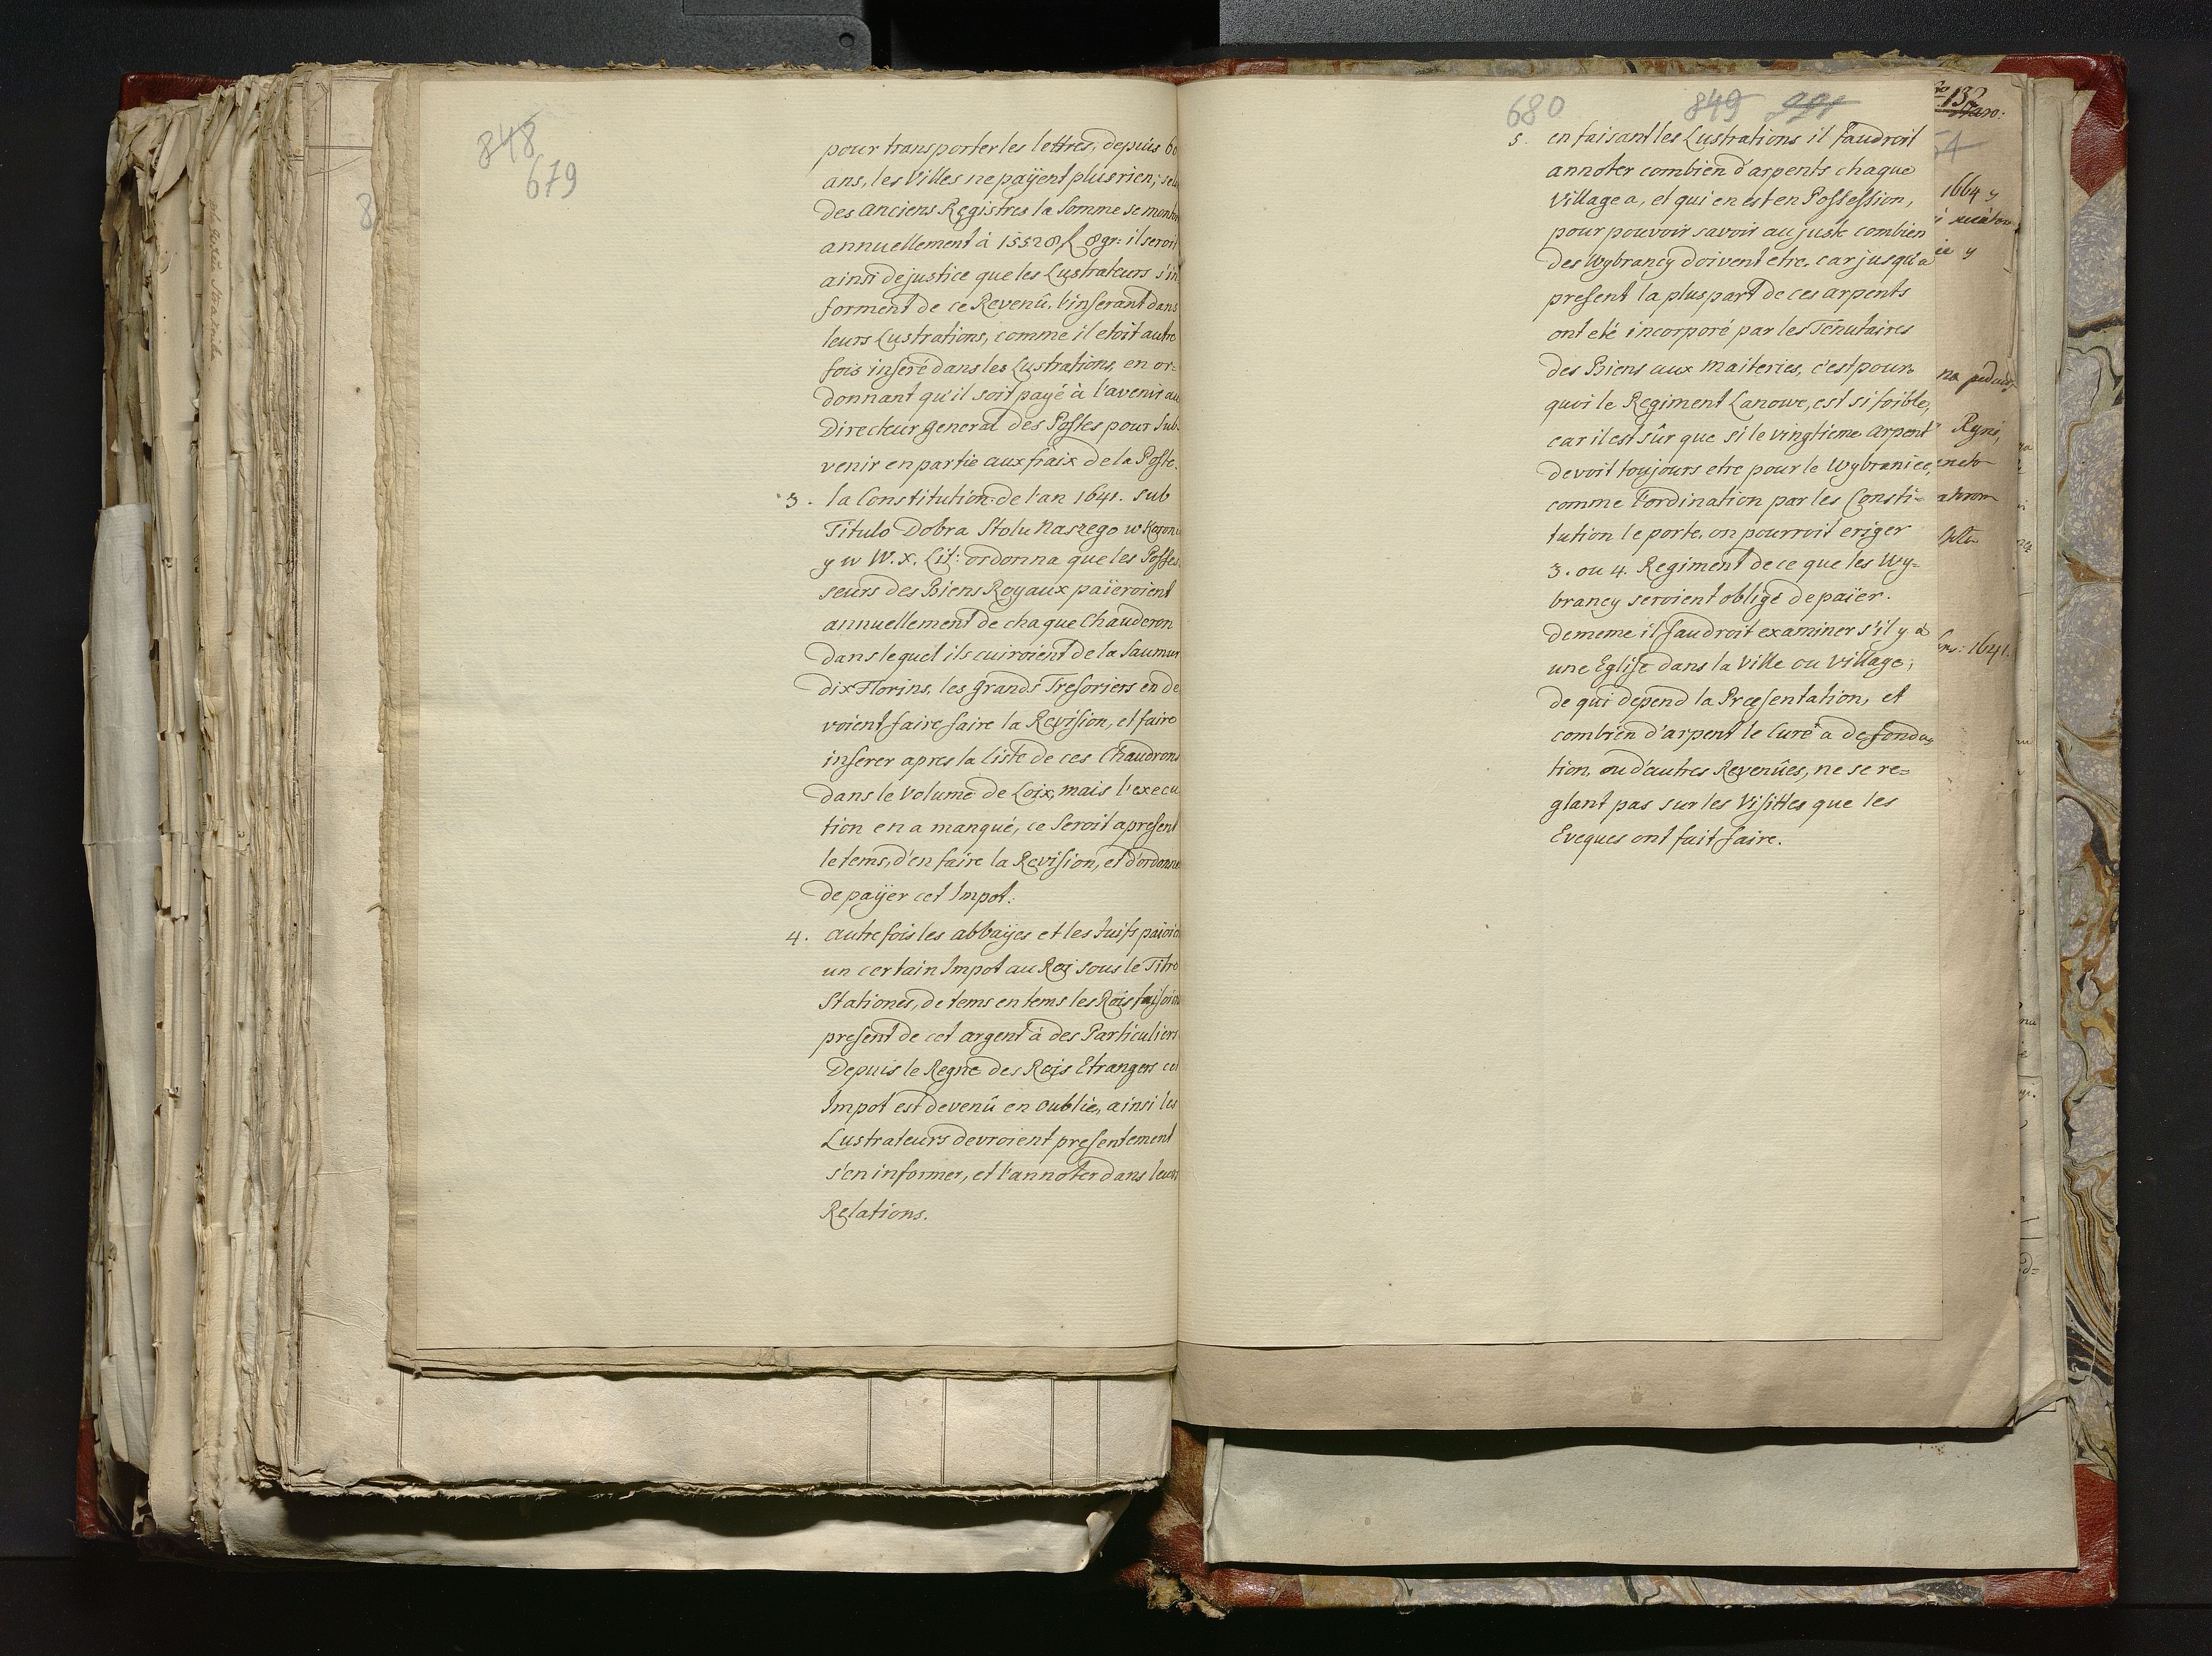 848
679
pour transporter les lettres, depuis 60
ans, les Villes ne païjent plus rien; selo
des anciens Registres la Somme se montoi
annuellement à 15528 f. 8 gr: il seroit
ainsi de justice que les Lustrateurs s'in
forment de ce Revenû, l'inserant dans
leurs Lustrations, comme il etoit autre
fois inseré dans les Lustrations, en or=
donnant qu'il soit payé à l'avenir au
Directeur general des Postes pour Sub.
venir en partie aux fraix de la Poste.
3. la Constitution de l'an 1641. sub
Titulo Dobra Stolu Naszego w Koron
y w W. X. Lit: ordonna que les Posses
seurs des Biens Royaux païeroient
annuellement de chaque Chauderon
dans lequel ils cuiroient de la Saumur
dix Florins, les grands Tresoriers en de
voient faire faire la Revision, et faire
inserer apres la liste de ces Chaudrons
dans le Volume de Loix, mais l'execu
tion en a manqué, ce seroit apresent
le tems, d'en faire la Revision, et d'ordonne
de paijer cet Impot.
4. autre fois les abbaijes et les Juifs païoie
un certain Impot au Roi sous le Titre
Stationes, de tems en tems les Rois faisoie
present de cet argent à des Particuliers
Depuis le Regne des Rois Etrangers cet
Impot est devenû en oublie, ainsi les
Lustrateurs devroient presentement
s'en informer, et l'annoter dans leurs
Relations.
680 849
5. en faisant les Lustrations il faudroit
annoter combien d'arpents chaque
Village a, et qui en est en Possession,
pour pouvoir savoir au juste combien
des Wybrancy doivent etre. car jusqu'à
present la pluspart de ces arpents
ont eté incorporé par les Tenutaires
des Biens aux Maiteries, c'est pour
quoi le Regiment Lanowe, est si foible,
car il est sûr que si le vingtieme Arpent
devoit toujours etre pour le Wybraniec,
comme l'ordination par les Consti=
tution le porte, on pourroit eriger
3. ou 4. Regiment de ce que les Wy=
brancy seroient obligé de païer.
de meme il faudroit examiner s'il y à
une Eglise dans la Ville ou Village;
de qui depend la Præsentation, et
combien d'arpent le Curé a de fonda
tion, ou d'autres Revenûes, ne se re=
glant pas sur les Visittes que les
Eveques ont fait faire.
132
1664 y
Ryni,
1641.